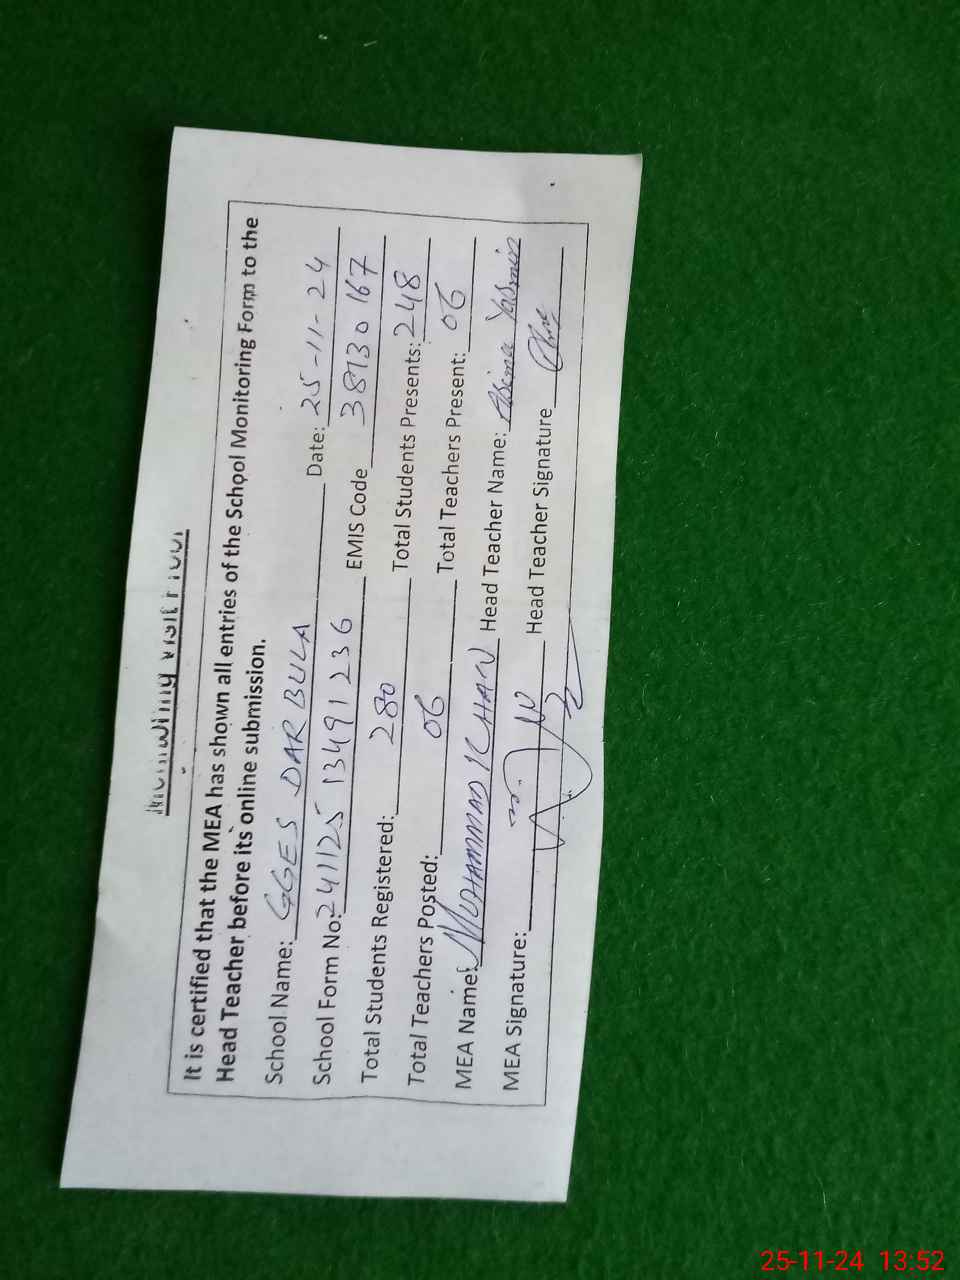 It is certified that the MEA has shown all entries of the School Monitoring Form to the
Head Teacher before its online submission.
School Name: GGES DARBULA Date: 25-11-24
School Form No: 241125 13491236 EMIS Code 38130167
Total Students Registered: 280 Total Students Presents: 248
Total Teachers Posted: 06 Total Teachers Present: 06
MEA Name: MUHAMMAD KHAN Head Teacher Name: Yasmin
MEA Signature: Head Teacher Signature
25-11-24 13:52